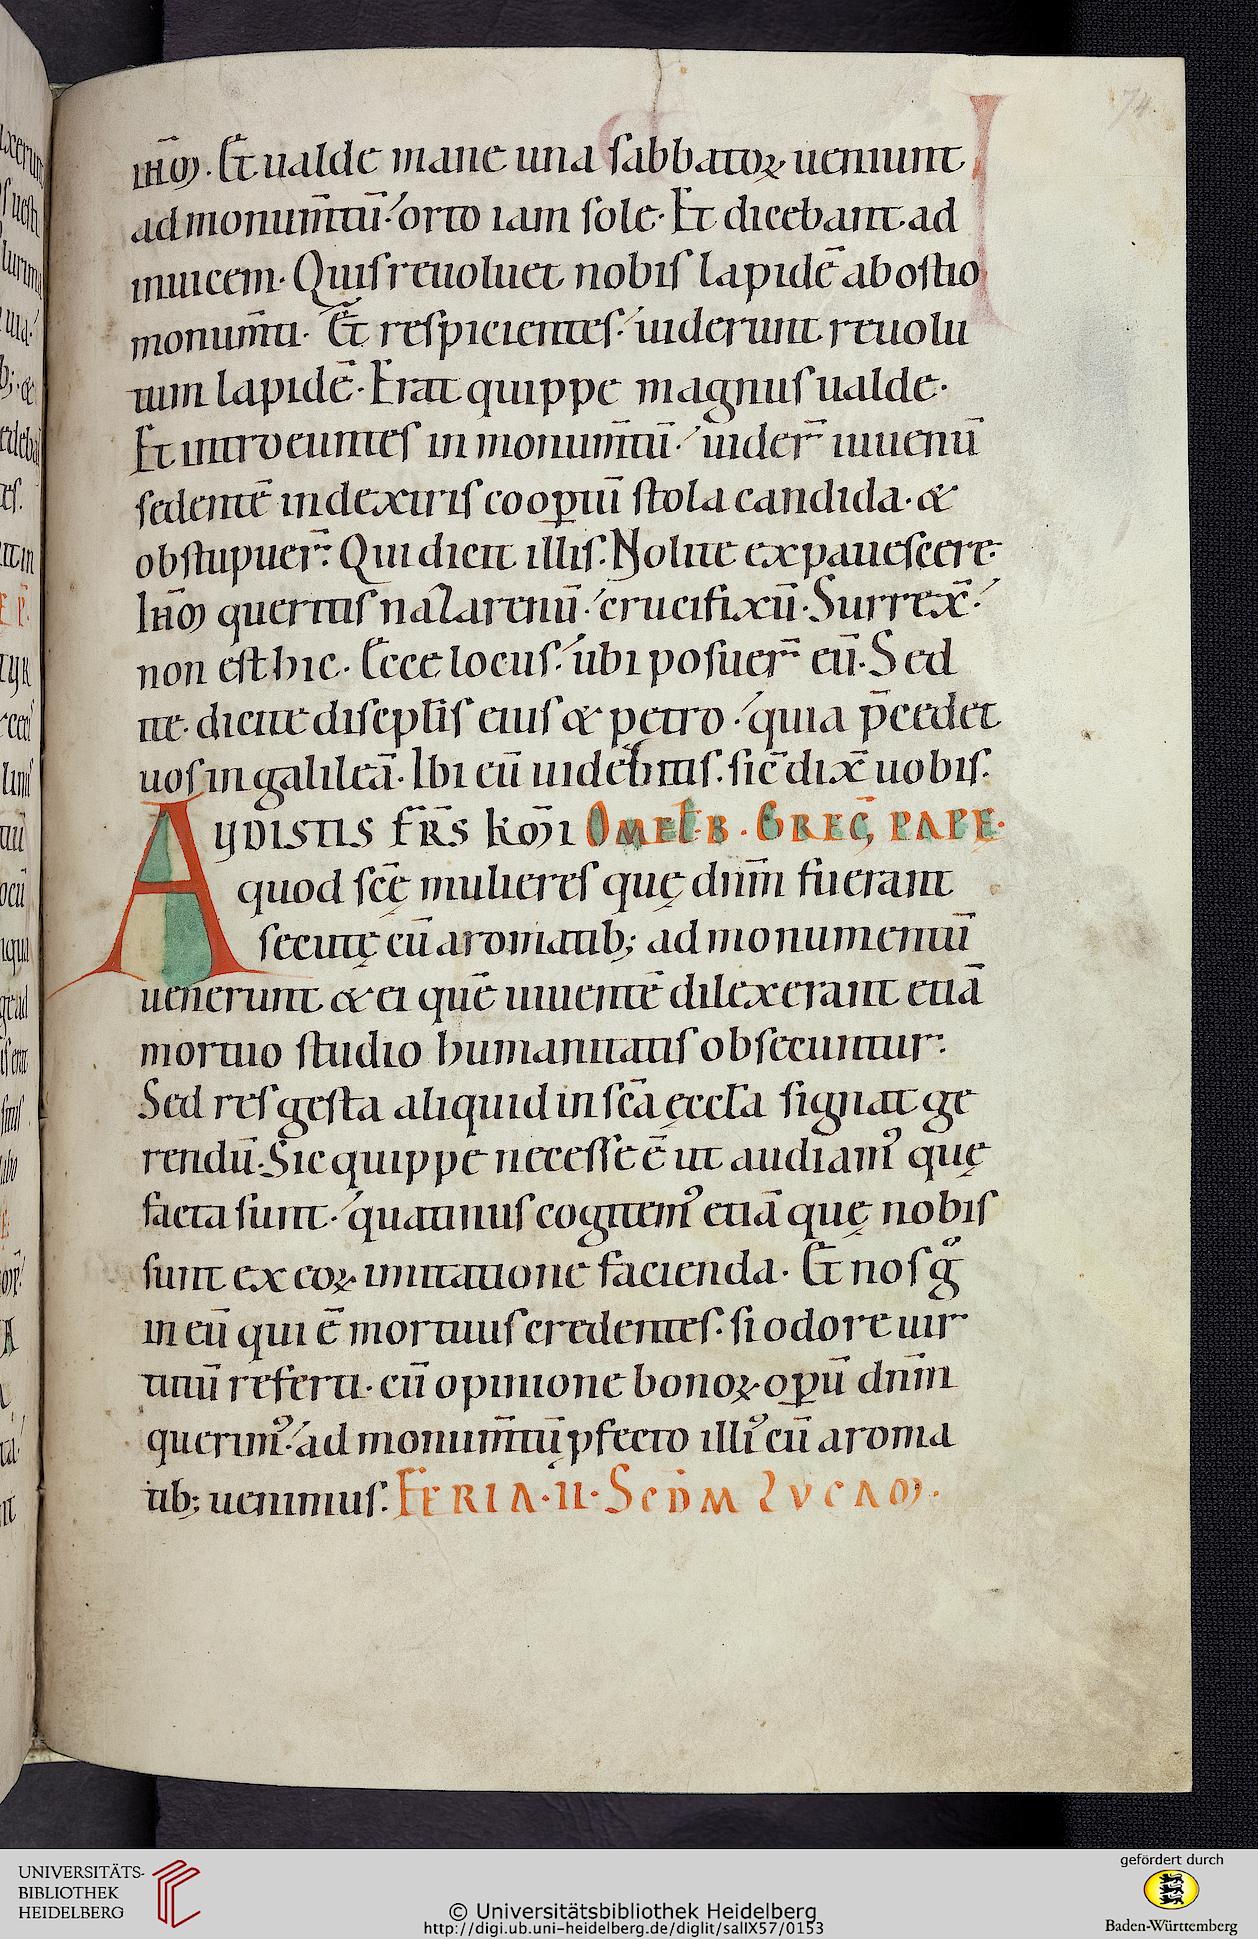 74.
ihm̄. Et ualde mane una sabbatoꝝ ueniunt
ad monum̄tū. orto iam sole. Et dicebant ad
inuicem. Quis reuoluet nobis lapidē ab ostio
monum̄ti. Et respicientes. uiderunt reuolu
tum lapidē. Erat quippe magnus ualde.
Et introeuntes in monum̄tū. uider̄ iuuenū
sedentē in dextris coopꝑtū stola candida. &
obstupuer̄. Qui dicit illis. Nolite expauescere.
Ihm̄ queritis nazarenū. crucifixū. Surrex̄.
non est hic. Ecce locus. ubi posuer̄ eū. Sed
ite. dicite discipl̄is eius & petro. quia p̄cedet
uos in galileā. Ibi eū uidebitis. sic̄ dix̄ uobis.
AUDISTIS FR̄S km̄i OMEL. B. GREḠ PAPE.
quod scę̄ mulieres quę dnm̄ fuerant
secutę cū aromatib; ad monumentū
uenerunt & ei quē uiuentē dilexerant etiā
mortuo studio humanitatis obsecuntur.
Sed res gesta aliquid in scā ęccl̄a signat ge
rendū. Sic quippe necesse ē ut audiamꝰ quę
facta sunt. quatinus cogitemꝰ etiā quę nobis
sunt ex eoꝝ imitatione facienda. Et nos gͦ
in eū qui ē mortuus credentes. si odore uir
tutū referti. cū opinione bonoꝝ oꝑū dnm̄
querimꝰ. ad monum̄tū ꝓfecto illiꝰ cū aroma
tib; uenimus. FERIA. II. SCDM LUCAM.
UNIVERSITÄTS-
BIBLIOTHEK
HEIDELBERG
© Universitätsbibliothek Heidelberg
http://digi.ub.uni-heidelberg.de/diglit/salIX57/0153
gefördert durch
Baden-Württemberg